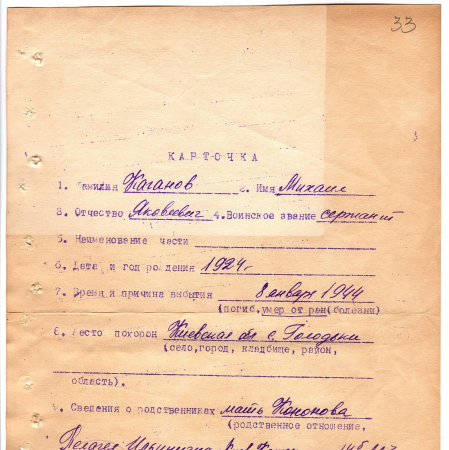 33
КАРТОЧКА
1. Фамилия Каганов 2. Имя Михаил
3. Отчество Яковлевич 4. Воинское звание сержант
5. Наименование части
6. Дата и год рождения 1924 г
7. Время и причина выбытия 8 января 1944
(погиб, умер от ран (болезни)
8. Место похорон Киевская обл с.
(село, город, кладбище, район,
область).
9. Сведения о родственниках мать Кононова
(родственное отношение,
Пелагея Ильинична